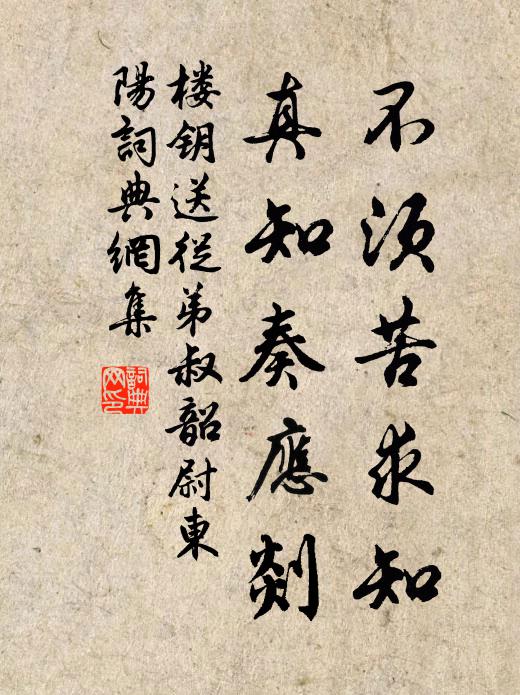 不須苦求知
真知奏應剡
楼钥送從弟叔韶尉東
陽詞典網集
詞典
网印